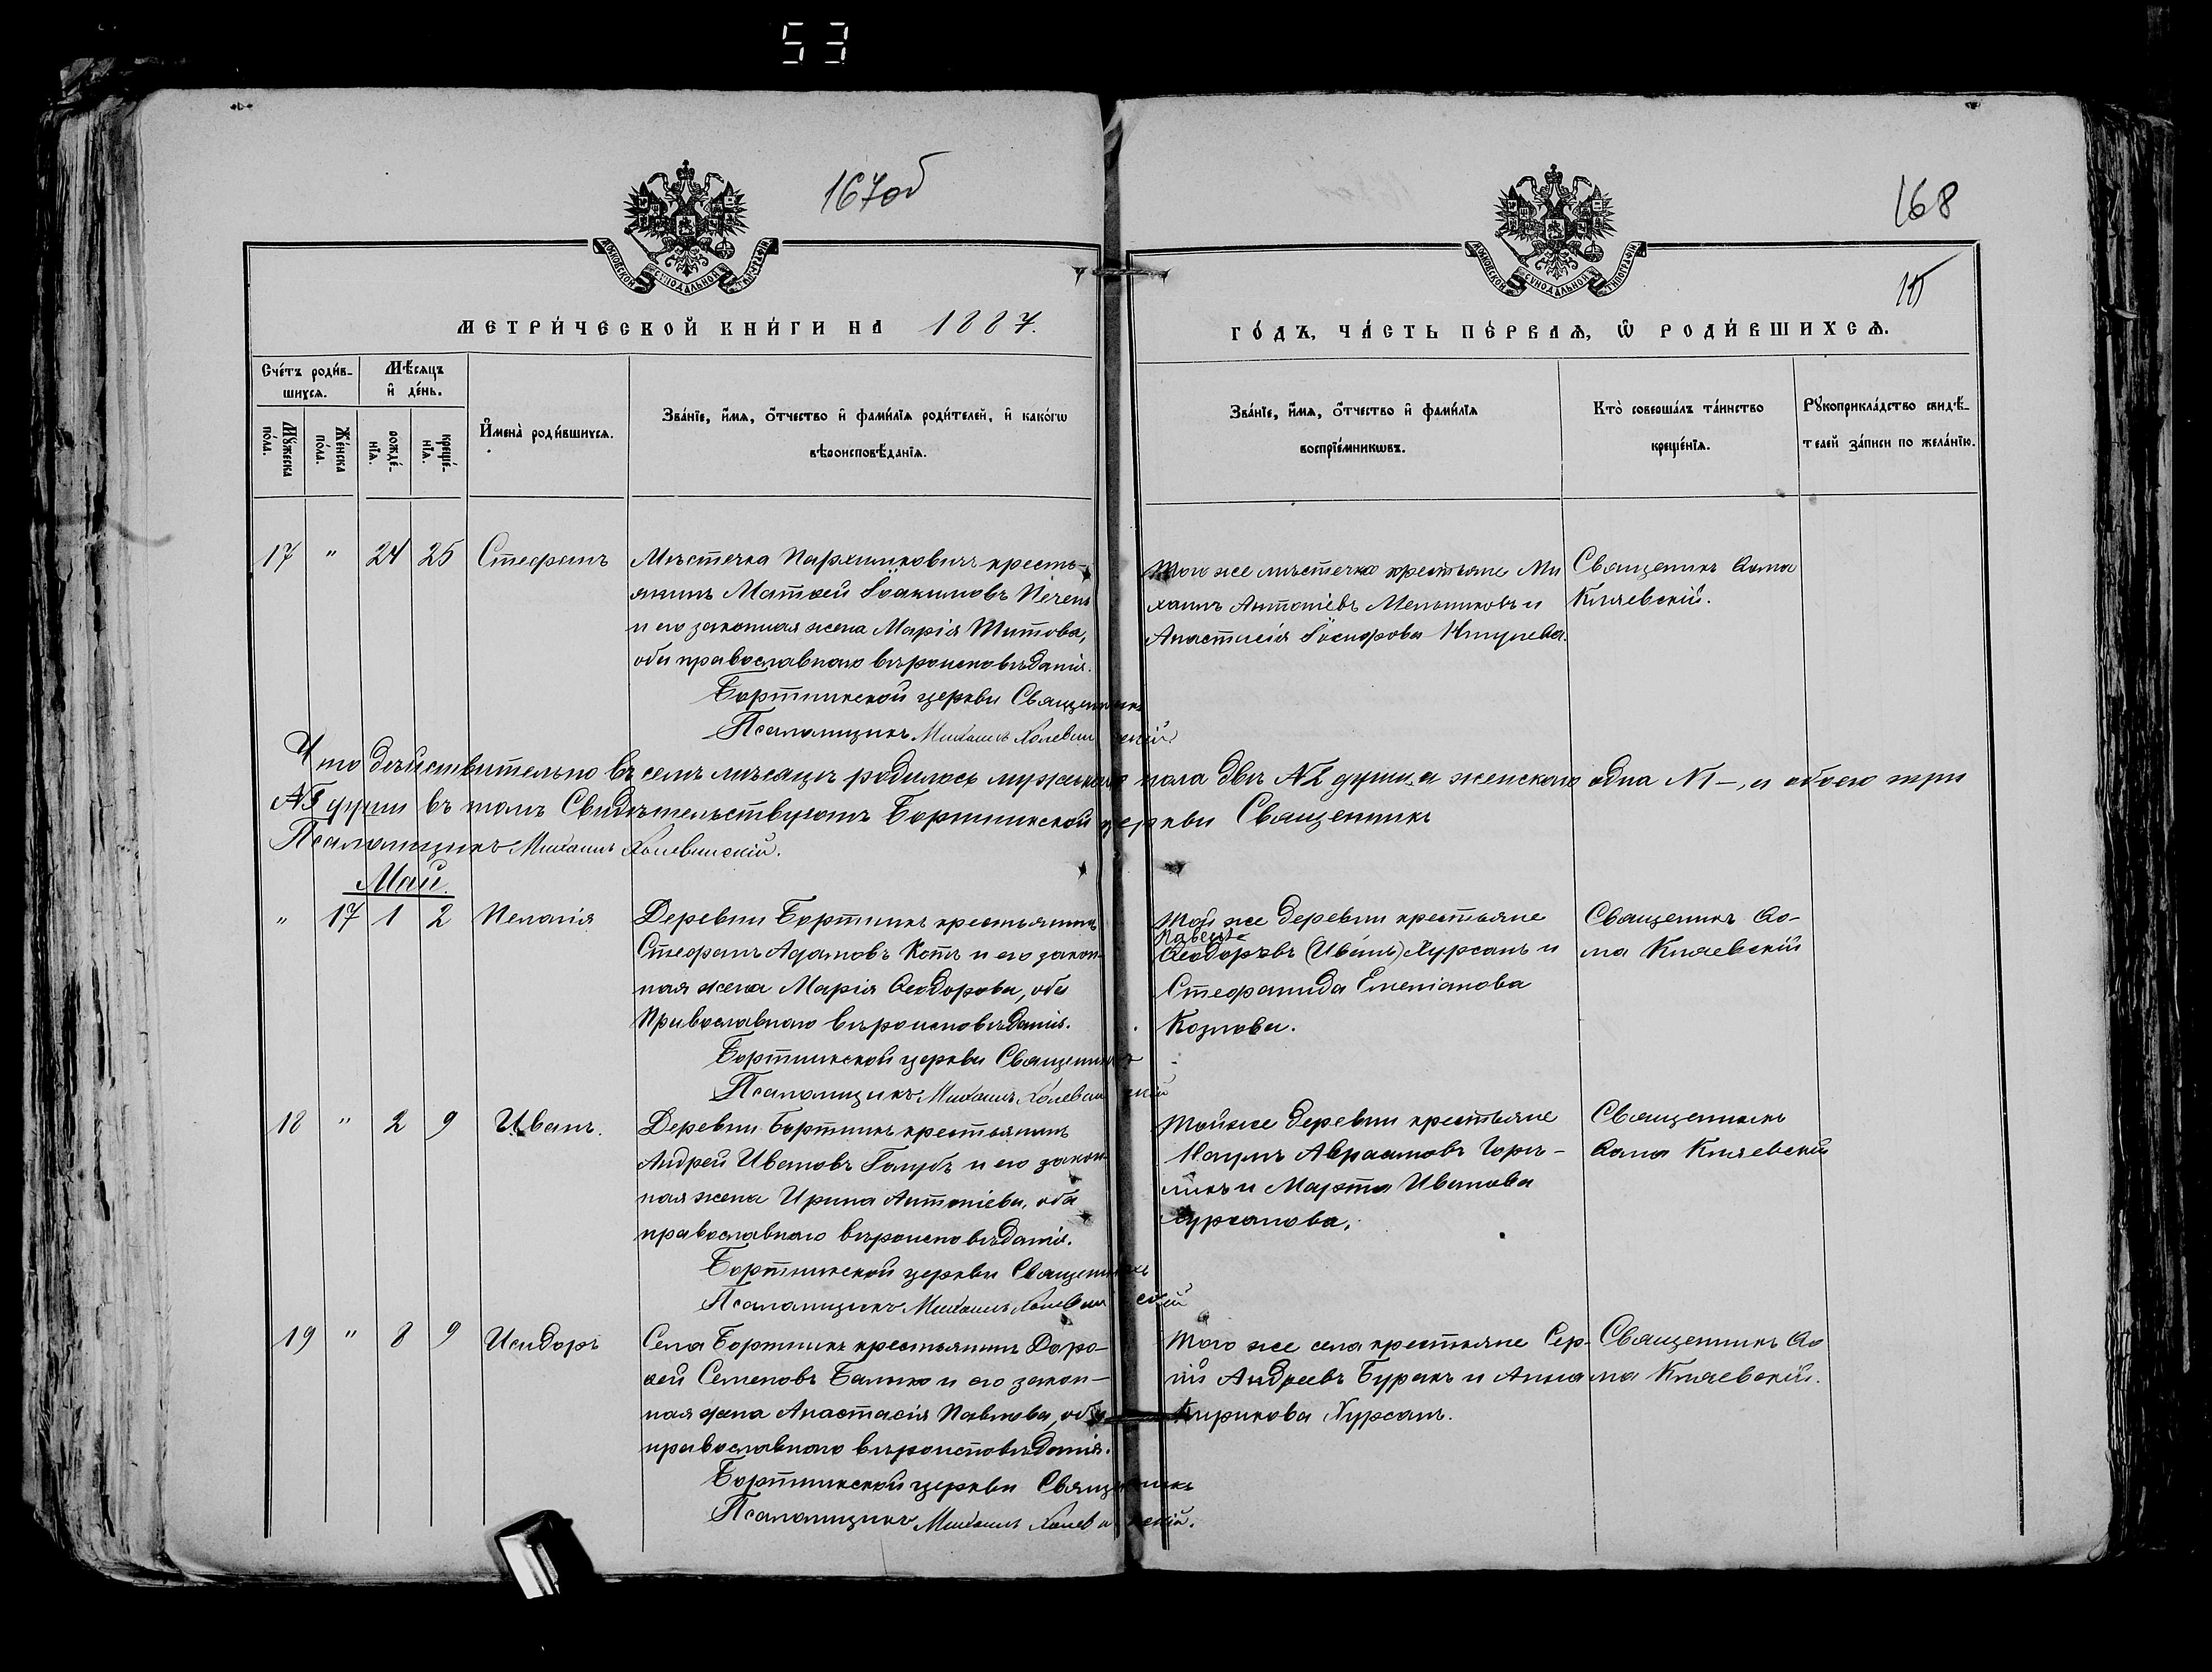 53
167об
168
15
МОСКОВСКОЙ СѴНОДАЛЬНОЙ ТИПОГРАФІИ
МОСКОВСКОЙ СѴНОДАЛЬНОЙ ТИПОГРАФІИ
МЕТРИ́ЧЕСКОЙ КНИ́ГИ НА 1887.
ГО́ДЪ, ЧА́СТЬ ПЕ́РВАѦ, Ѽ РОДИ́ВШИХСѦ.
Сче́тъ роди́в-
шихсѧ.
Мѣ́сѧцъ
и҆ де́нь.
Мꙋ́жеска по́ла.
Же́нска по́ла.
рожде́-нїѧ.
креще́-нїѧ.
И҆мена̀ роди́вшихсѧ.
Зва́нїе, и҆́мѧ, ѻ҆́тчество и҆ фами́лїѧ роди́телей, и҆ како́гѡ
вѣроисповѣ́данїѧ.
Зва́нїе, и҆́мѧ, ѻ҆́тчество и҆ фами́лїѧ
воспрїе́мникѡвъ.
Кто̀ соверша́лъ та́инство
креще́нїѧ.
Рꙋкоприкла́дство свидѣ́-
телей за́писи по жела́нїю.
17 " 24 25 Стефанъ
Мѣстечка крестья-
нинъ Матѳей Іоакимовъ
и его законная жена Марія Титова,
оба православнаго вѣроисповѣданія.
Бортникской церкви Священникъ
Псаломщикъ Михаилъ Холевинскій.
Того же мѣстечка крестьяне Ми
хаилъ Антоніевъ Мельниковъ и
Анастасія Іосифова
Священникъ Ѳома
Княевскій.
Что дѣйствительно въ семъ мѣсяцѣ родилось мужскаго пола двѣ №2 души, а женскаго одна №1 –, а обоего три
№3 души въ томъ Свидѣтельствуютъ Бортникской церкви Священникъ
Псаломщикъ Михаилъ Холевинскій.
Май.
" 17 1 2 Пелагія
Деревни Бортникъ крестьянинъ
Стефанъ Адамовъ Котъ и его закон
ная жена Марія Ѳеодорова, оба
Православнаго вѣроисповѣданія.
Бортникской церкви Священникъ
Псаломщикъ Михаилъ Холевинскій
Той же деревни крестьяне
Павелъ
Ѳеодоровъ (Иванъ) Хурсанъ и
Стефанида Емеліанова
Козлова.
Священникъ Ѳо-
ма Княевскій
18 " 2 9 Иванъ.
Деревни Бортникъ крестьянинъ
Андрей Ивановъ Голубъ и его закон
ная жена Ирина Антоніева, оба
православнаго вѣроисповѣданія.
Бортникской церкви Священникъ
Псаломщикъ Михаилъ Холевинскій
Той же деревни крестьяне
Наумъ Авраамовъ
и Марта Иванова
Хурсанова.
Священникъ
Ѳома Княевскій
19 " 8 9 Исидоръ
Села Бортникъ крестьянинъ Доро-
ѳей Семеновъ и его закон-
ная жена Анастасія Павлова, оба
православнаго вѣроисповѣданія.
Бортникской церкви Священникъ
Псаломщикъ Михаилъ Холевинскій.
Того же села крестьяне Сер-
гій Андреевъ Буракъ и Анна
Кирикова Хурсанъ.
Священникъ Ѳо
ма Княевскій.